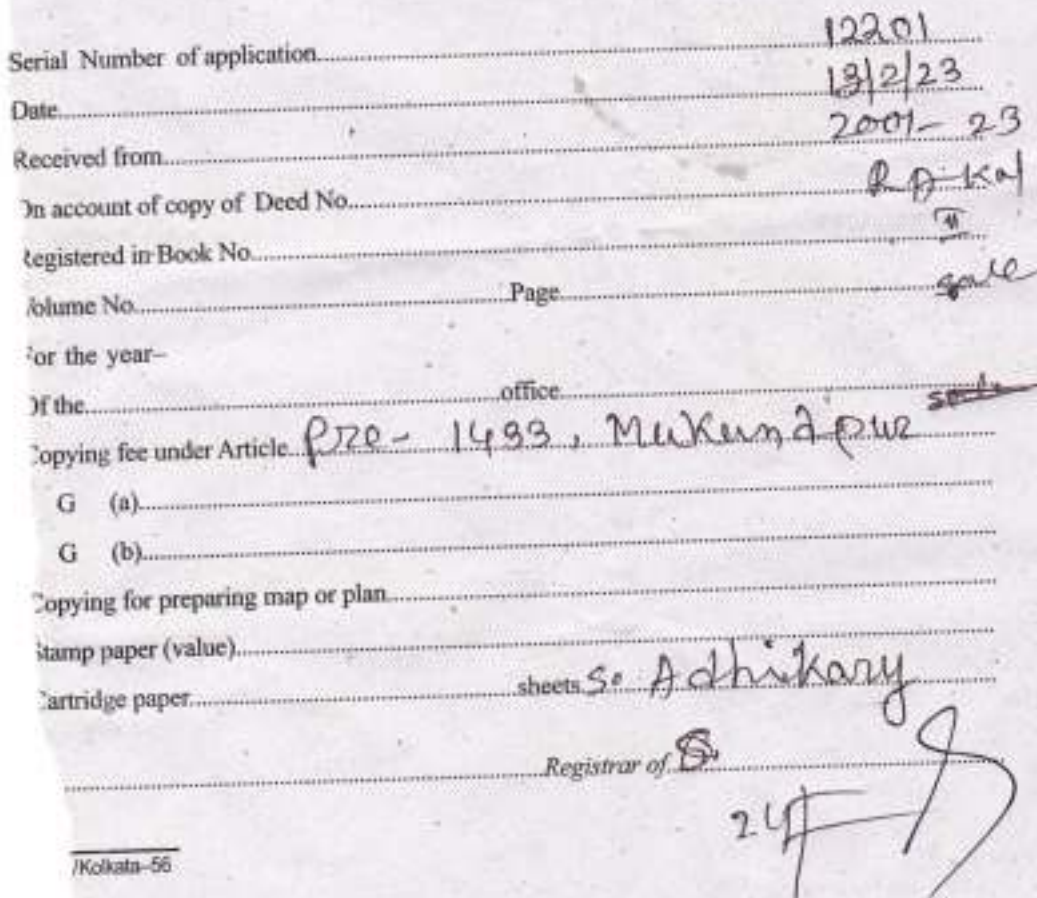 Serial Number of application 12201
Date 13/2/23
Received from 2001- 23
On account of copy of Deed No. R A Kal
Registered in Book No.
Volume No. Page sale
For the year–
Of the office
Copying fee under Article Pre- 1493, Mukundpur
G (a)
G (b)
Copying for preparing map or plan
Stamp paper (value)
Cartridge paper sheets S. Adhikary
Registrar of
24
/Kolkata–56